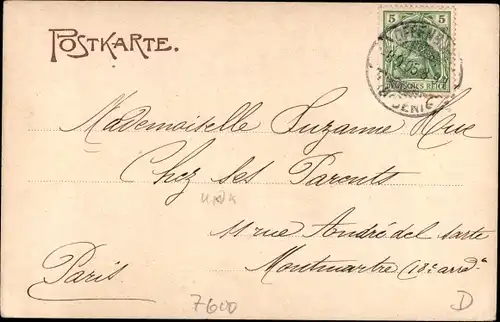 POSTKARTE.
5 5
OFFENBURG
DEUTSCHES REICH
Mademoiselle Suzanne Hue
Chez ses Parents
11 rue André del Sarte
Montmartre (18e arrd.t
Paris
7600
D